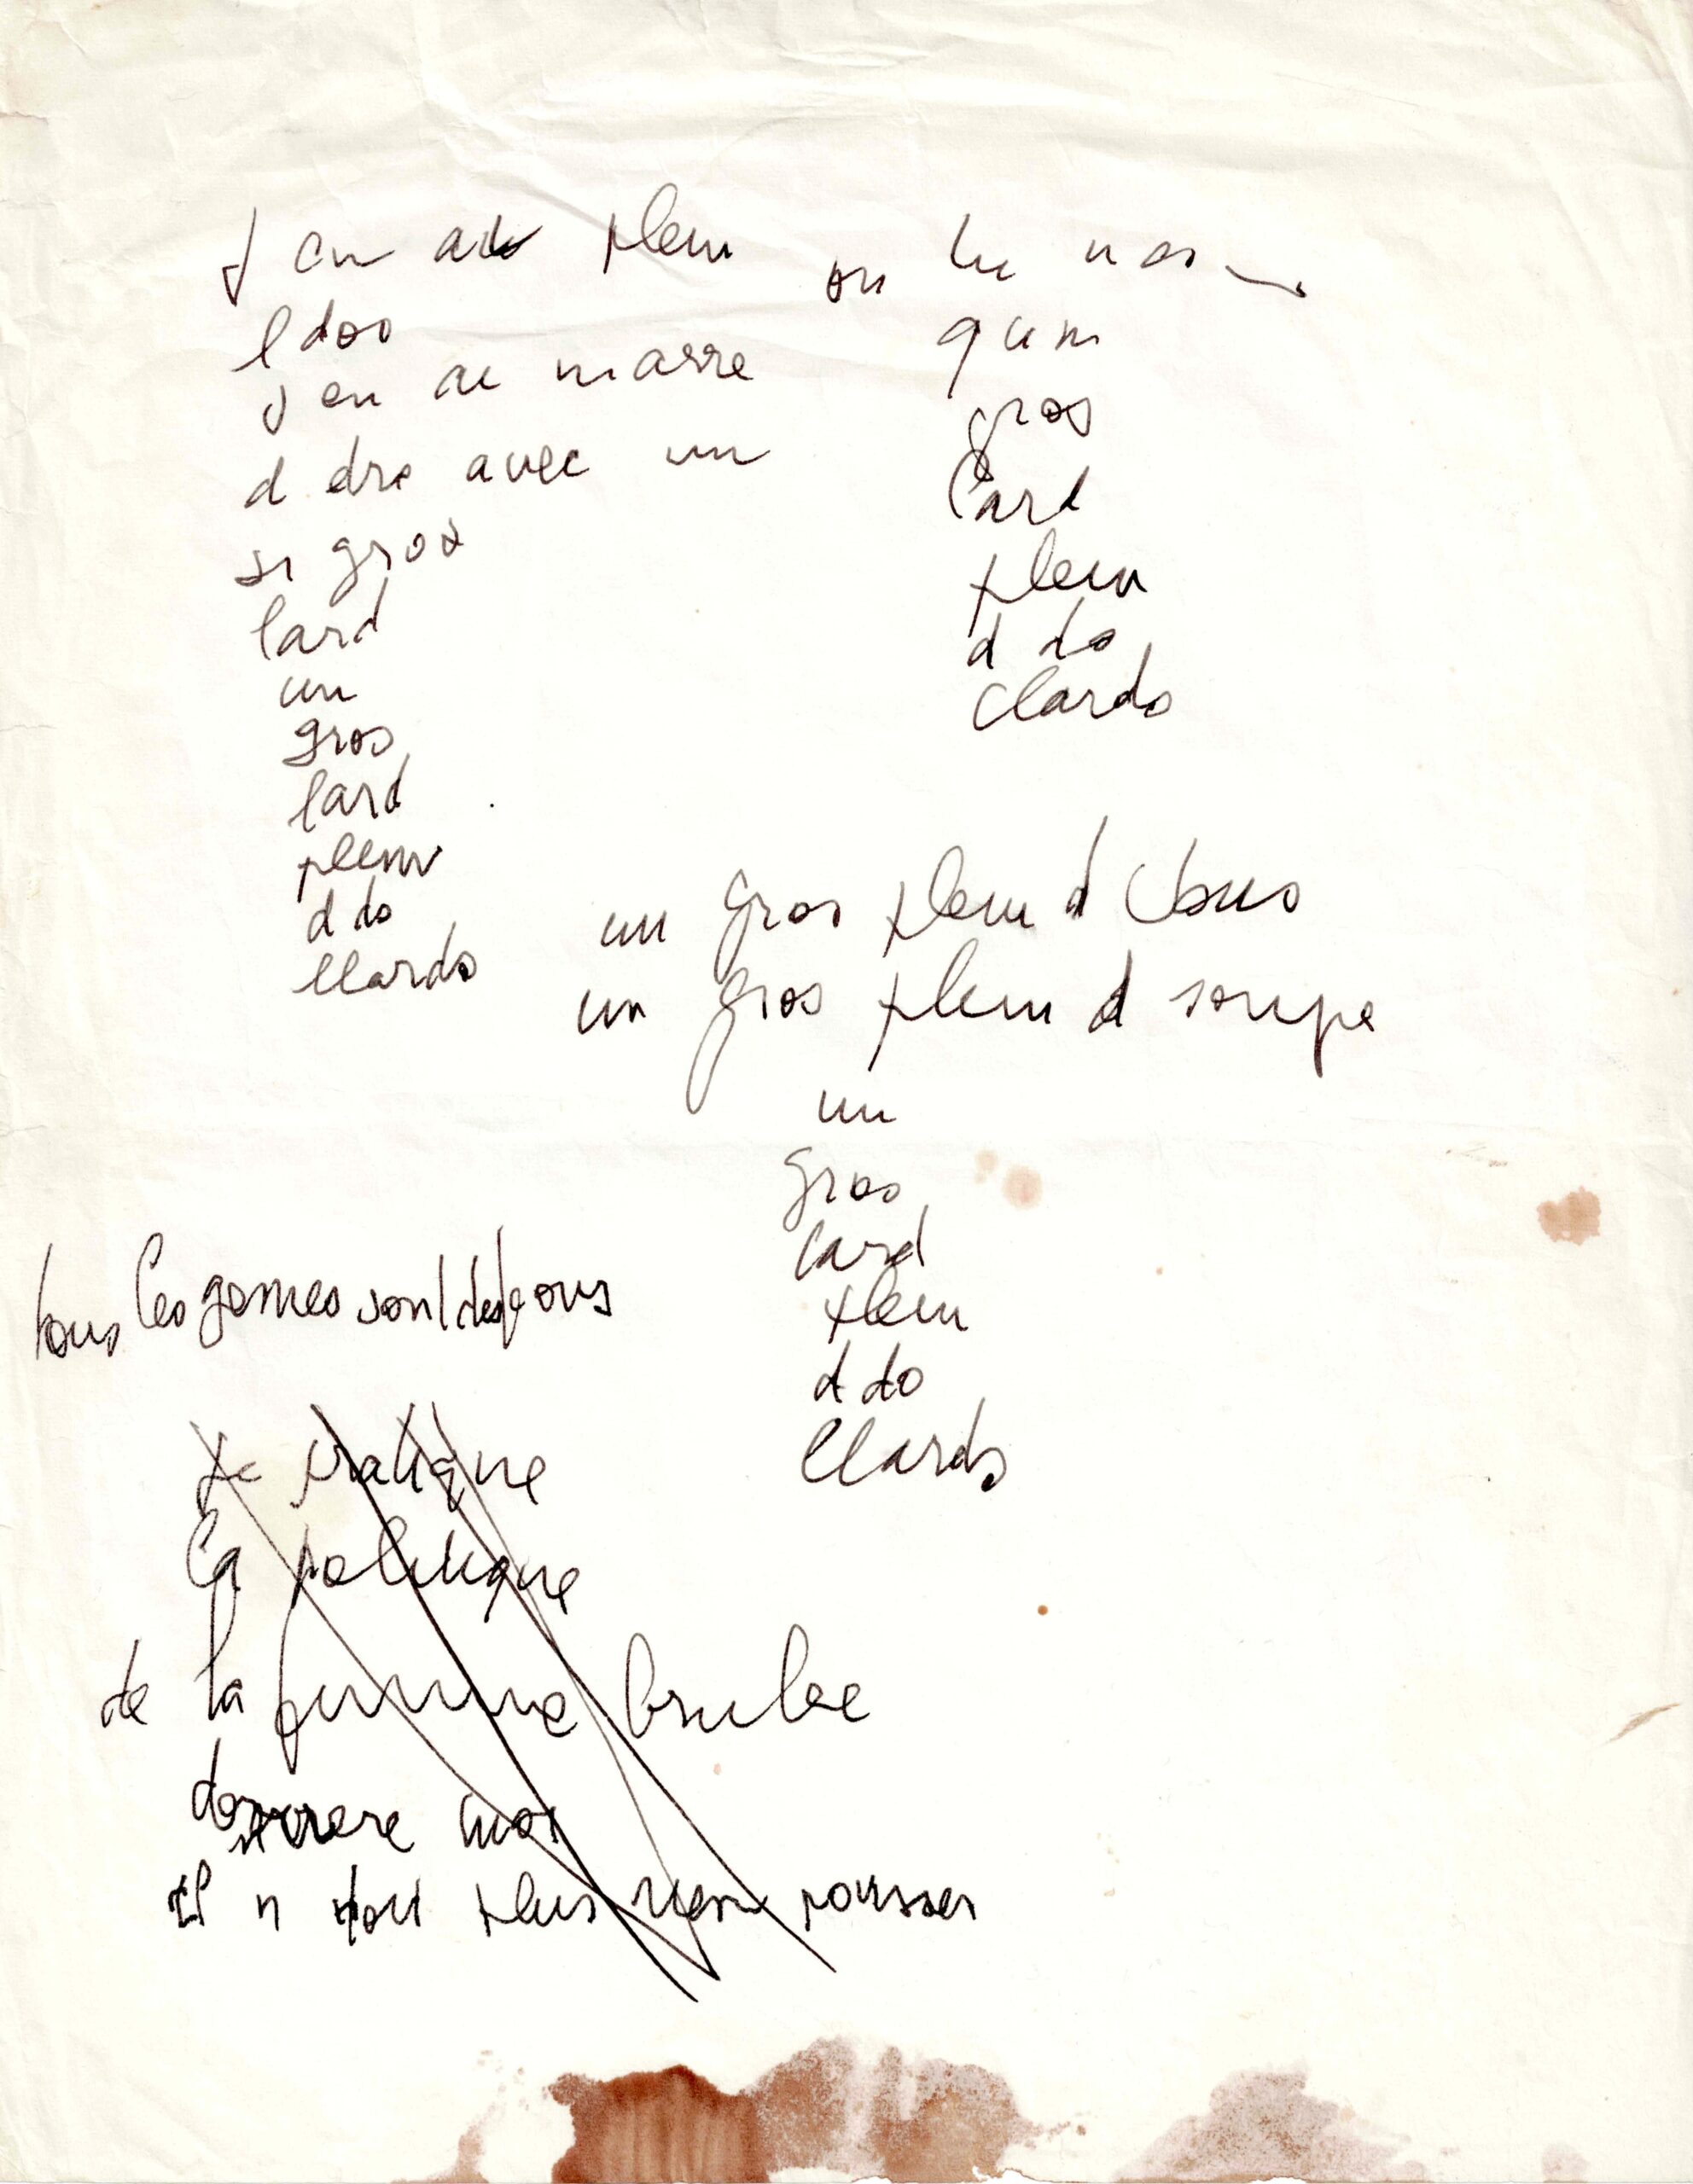 J en ai plein
l dos
j en ai marre
d etre avec un
si gros
lard
un
gros
lard
plein
d do
llards
on
qu un
gros
lard
plein
d do
llards
un gros plein d
un gros plein d soupe
un
gros
lard
plein
d do
llards
tous les gennes sont des fous
je pratique
la politique
de la femme brulee
derrere moi
il n doit plus rien pousser